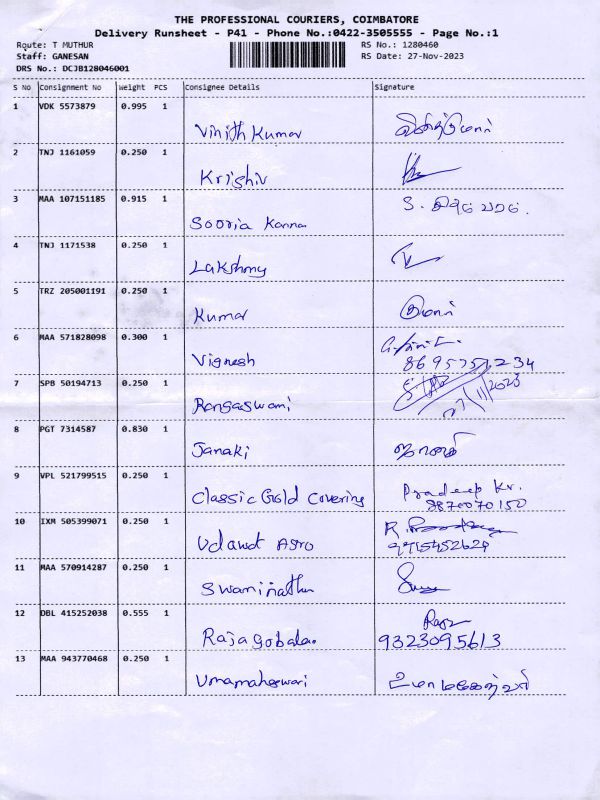 THE PROFESSIONAL COURIERS, COIMBATORE
Delivery Runsheet - P41 - Phone No.:0422-3505555 - Page No.:1
Route: T MUTHUR RS No.: 1280460
Staff: GANESAN RS Date: 27-Nov-2023
DRS No.: DCJB128046001
S No Consignment No Weight PCS Consignee Details Signature
1 VDK 5573879 0.995 1
Vinith Kumar
2 TNJ 1161059 0.250 1
Krishiv
3 MAA 107151185 0.915 1
Sooria Kanna
4 TNJ 1171538 0.250 1
Lakshmy
5 TRZ 205001191 0.250 1
Kumar குமார்
6 MAA 571828098 0.300 1
Vignesh 8695751234
7 SPB 50194713 0.250 1
Rangaswami 27/11/2023
8 PGT 7314587 0.830 1
Janaki ஜானகி
9 VPL 521799515 0.250 1
Classic Gold Covering Pradeep Kr.
8870070150
10 IXM 505399071 0.250 1
Udawat Agro
11 MAA 570914287 0.250 1
Swaminathn
12 DBL 415252038 0.555 1
Rajagobalan 9323095613
13 MAA 943770468 0.250 1
Umamaheswari உமாமகேஸ்வரி